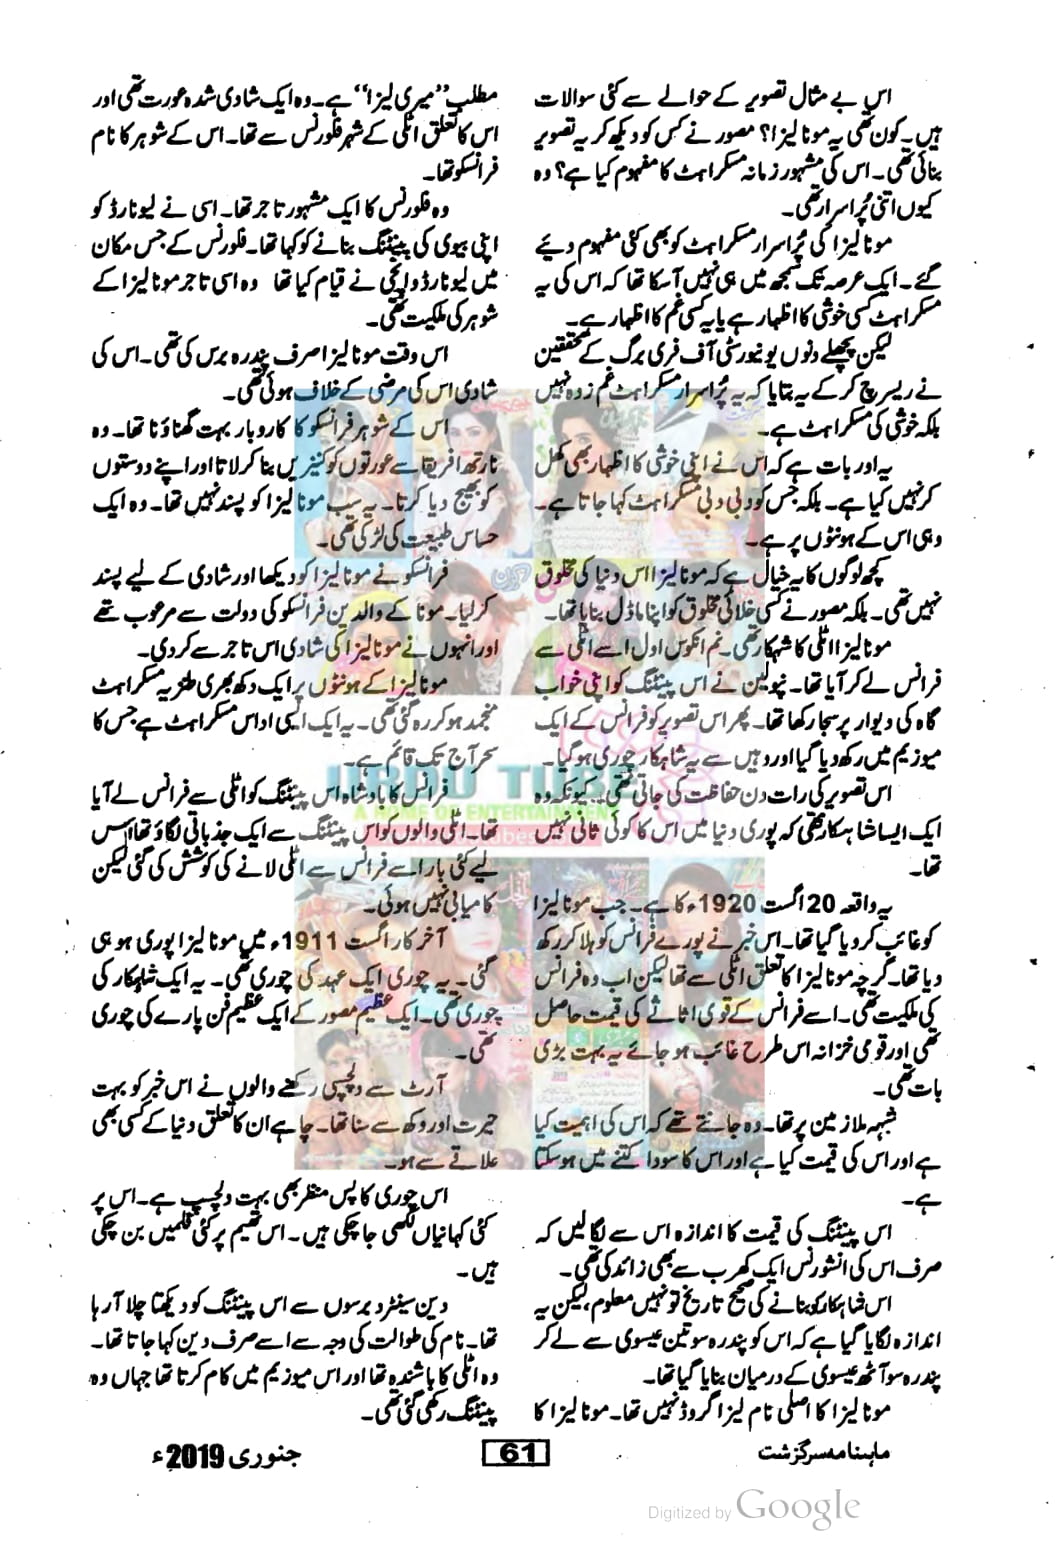 اس بے مثال تصویر کے حوالے سے کئی سوالات
ہیں۔ کون تھی یہ مونا لیزا؟ مصور نے کس کو دیکھ کر یہ تصویر
بنائی تھی۔ اس کی مشہور زمانہ مسکراہٹ کا مفہوم کیا ہے؟ وہ
کیوں اتنی پُراسرار تھی۔
مونا لیزا کی پُراسرار مسکراہٹ کو بھی کئی مفہوم دیئے
گئے۔ ایک عرصہ تک سمجھ میں ہی نہیں آسکا تھا کہ اس کی یہ
مسکراہٹ کسی خوشی کا اظہار ہے یا یہ کسی غم کا اظہار ہے۔
لیکن پچھلے دنوں یونیورسٹی آف فری برگ کے محققین
نے ریسرچ کر کے یہ بتایا کہ یہ پُراسرار مسکراہٹ غم زدہ نہیں
بلکہ خوشی کی مسکراہٹ ہے۔
یہ اور بات ہے کہ اس نے اپنی خوشی کا اظہار بھی کھل
کر نہیں کیا ہے۔ بلکہ جس کو دبی دبی مسکراہٹ کہا جاتا ہے۔
وہی اس کے ہونٹوں پر ہے۔
کچھ لوگوں کا یہ خیال ہے کہ مونا لیزا اس دنیا کی مخلوق
نہیں تھی۔ بلکہ مصور نے کسی خلائی مخلوق کو اپنا ماڈل بنایا تھا۔
مونا لیزا اٹلی کا شہکار تھی۔ نم انکوس اول اسے اٹلی سے
فرانس لے کر آیا تھا۔ نپولین نے اس پینٹنگ کو اپنی خواب
گاہ کی دیوار پر سجا رکھا تھا۔ پھر اس تصویر کو فرانس کے ایک
میوزیم میں رکھ دیا گیا اور وہیں سے یہ شاہکار چوری ہو گیا۔
اس تصویر کی رات دن حفاظت کی جاتی تھی۔ کیونکہ وہ
ایک ایسا شاہکار تھی کہ پوری دنیا میں اس کا کوئی ثانی نہیں
تھا۔
یہ واقعہ 20 اگست 1920ء کا ہے۔ جب مونا لیزا
کو غائب کر دیا گیا تھا۔ اس خبر نے پورے فرانس کو ہلا کر رکھ
دیا تھا۔ گرچہ مونا لیزا کا تعلق اٹلی سے تھا لیکن اب وہ فرانس
کی ملکیت تھی۔ اسے فرانس کے قومی اثاثے کی قیمت حاصل
تھی اور قومی خزانہ اس طرح غائب ہو جائے یہ بہت بڑی
بات تھی۔
شبہہ ملازمین پر تھا۔ وہ جانتے تھے کہ اس کی اہمیت کیا
ہے اور اس کی قیمت کیا ہے اور اس کا سودا کتنے میں ہو سکتا
ہے۔
اس پینٹنگ کی قیمت کا اندازہ اس سے لگا لیں کہ
صرف اس کی انشورنس ایک کھرب سے بھی زائد کی تھی۔
اس شاہکار کو بنانے کی صحیح تاریخ تو نہیں معلوم، لیکن یہ
اندازہ لگایا گیا ہے کہ اس کو پندرہ سو تین عیسوی سے لے کر
پندرہ سو آٹھ عیسوی کے درمیان بنایا گیا تھا۔
مونا لیزا کا اصلی نام لیزا گروڈ نہیں تھا۔ مونا لیزا کا
مطلب ”میری لیزا“ ہے۔ وہ ایک شادی شدہ عورت تھی اور
اس کا تعلق اٹلی کے شہر فلورنس سے تھا۔ اس کے شوہر کا نام
فرانسکو تھا۔
وہ فلورنس کا ایک مشہور تاجر تھا۔ اسی نے لیونارڈ کو
اپنی بیوی کی پینٹنگ بنانے کو کہا تھا۔ فلورنس کے جس مکان
میں لیونارڈ وانچی نے قیام کیا تھا وہ اسی تاجر مونا لیزا کے
شوہر کی ملکیت تھی۔
اس وقت مونا لیزا صرف پندرہ برس کی تھی۔ اس کی
شادی اس کی مرضی کے خلاف ہوئی تھی۔
اس کے شوہر فرانسکو کا کاروبار بہت گھناؤنا تھا۔ وہ
نارتھ افریقا سے عورتوں کو کنیزیں بنا کر لاتا اور اپنے دوستوں
کو بھیج دیا کرتا۔ یہ سب مونا لیزا کو پسند نہیں تھا۔ وہ ایک
حساس طبیعت کی لڑکی تھی۔
فرانسکو نے مونا لیزا کو دیکھا اور شادی کے لیے پسند
کر لیا۔ مونا کے والدین فرانسکو کی دولت سے مرعوب تھے
اور انہوں نے مونا لیزا کی شادی اس تاجر سے کر دی۔
مونا لیزا کے ہونٹوں پر ایک دکھ بھری طنزیہ مسکراہٹ
منجمد ہو کر رہ گئی تھی۔ یہ ایک ایسی اداس مسکراہٹ ہے جس کا
سحر آج تک قائم ہے۔
فرانس کا بادشاہ اس پینٹنگ کو اٹلی سے فرانس لے آیا
تھا۔ اٹلی والوں کو اس پینٹنگ سے ایک جذباتی لگاؤ تھا اس
لیے کئی بار اسے فرانس سے اٹلی لانے کی کوشش کی گئی لیکن
کامیابی نہیں ہوئی۔
آخر کار اگست 1911ء میں مونا لیزا چوری ہو ہی
گئی۔ یہ چوری ایک عہد کی چوری تھی۔ یہ ایک شاہکار کی
چوری تھی۔ ایک عظیم مصور کے ایک عظیم فن پارے کی چوری
تھی۔
آرٹ سے دلچسپی رکھنے والوں نے اس خبر کو بہت
حیرت اور دکھ سے سنا تھا۔ چاہے ان کا تعلق دنیا کے کسی بھی
علاقے سے ہو۔
اس چوری کا پس منظر بھی بہت دلچسپ ہے۔ اس پر
کئی کہانیاں لکھی جا چکی ہیں۔ اس تھیم پر کئی فلمیں بن چکی
ہیں۔
دین سینٹرد برسوں سے اس پینٹنگ کو دیکھتا چلا آ رہا
تھا۔ نام کی طوالت کی وجہ سے اسے صرف دین کہا جاتا تھا۔
وہ اٹلی کا باشندہ تھا اور اس میوزیم میں کام کرتا تھا جہاں وہ
پینٹنگ رکھی گئی تھی۔
URDU TUBE
A HOME OF ENTERTAINMENT
ماہنامہ سرگزشت
61
جنوری 2019ء
Digitized by Google